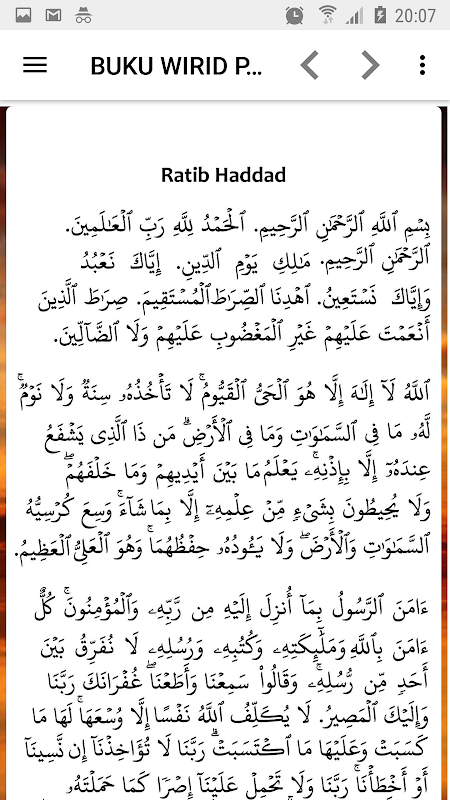 20:07
BUKU WIRID P...
Ratib Haddad
بِسْمِ ٱللَّهِ ٱلرَّحْمَٰنِ ٱلرَّحِيمِ. ٱلْحَمْدُ لِلَّهِ رَبِّ ٱلْعَٰلَمِينَ.
ٱلرَّحْمَٰنِ ٱلرَّحِيمِ. مَٰلِكِ يَوْمِ ٱلدِّينِ. إِيَّاكَ نَعْبُدُ
وَإِيَّاكَ نَسْتَعِينُ. ٱهْدِنَا ٱلصِّرَٰطَ ٱلْمُسْتَقِيمَ. صِرَٰطَ ٱلَّذِينَ
أَنْعَمْتَ عَلَيْهِمْ غَيْرِ ٱلْمَغْضُوبِ عَلَيْهِمْ وَلَا ٱلضَّآلِّينَ.
ٱللَّهُ لَآ إِلَٰهَ إِلَّا هُوَ ٱلْحَىُّ ٱلْقَيُّومُ ۚ لَا تَأْخُذُهُۥ سِنَةٌ وَلَا نَوْمٌ ۚ
لَّهُۥ مَا فِى ٱلسَّمَٰوَٰتِ وَمَا فِى ٱلْأَرْضِ ۗ مَن ذَا ٱلَّذِى يَشْفَعُ
عِندَهُۥٓ إِلَّا بِإِذْنِهِۦ ۚ يَعْلَمُ مَا بَيْنَ أَيْدِيهِمْ وَمَا خَلْفَهُمْ ۖ
وَلَا يُحِيطُونَ بِشَىْءٍ مِّنْ عِلْمِهِۦٓ إِلَّا بِمَا شَآءَ ۚ وَسِعَ كُرْسِيُّهُ
ٱلسَّمَٰوَٰتِ وَٱلْأَرْضَ ۖ وَلَا يَـُٔودُهُۥ حِفْظُهُمَا ۚ وَهُوَ ٱلْعَلِىُّ ٱلْعَظِيمُ.
ءَامَنَ ٱلرَّسُولُ بِمَآ أُنزِلَ إِلَيْهِ مِن رَّبِّهِۦ وَٱلْمُؤْمِنُونَ ۚ كُلٌّ
ءَامَنَ بِٱللَّهِ وَمَلَٰٓئِكَتِهِۦ وَكُتُبِهِۦ وَرُسُلِهِۦ لَا نُفَرِّقُ بَيْنَ
أَحَدٍ مِّن رُّسُلِهِۦ ۚ وَقَالُوا۟ سَمِعْنَا وَأَطَعْنَا ۖ غُفْرَانَكَ رَبَّنَا
وَإِلَيْكَ ٱلْمَصِيرُ. لَا يُكَلِّفُ ٱللَّهُ نَفْسًا إِلَّا وُسْعَهَا ۚ لَهَا مَا
كَسَبَتْ وَعَلَيْهَا مَا ٱكْتَسَبَتْ ۗ رَبَّنَا لَا تُؤَاخِذْنَآ إِن نَّسِينَآ
أَوْ أَخْطَأْنَا ۚ رَبَّنَا وَلَا تَحْمِلْ عَلَيْنَآ إِصْرًا كَمَا حَمَلْتَهُۥ